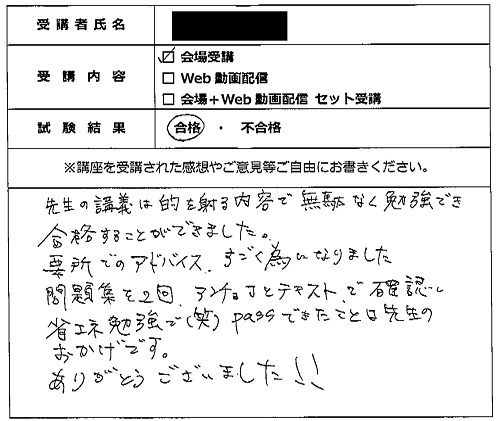 受講者氏名
受講内容
☑ 会場受講
☐ Web動画配信
☐ 会場+Web動画配信 セット受講
試験結果
合格 ・ 不合格
※講座を受講された感想やご意見等ご自由にお書きください。
先生の講義は的を射る内容で無駄なく勉強でき
合格することができました。
要所でのアドバイス、すごく為になりました
問題集を2回、アンチョコとテキストで確認し
省エネ勉強で(笑) passできたことは先生の
おかげです。
ありがとうございました!!